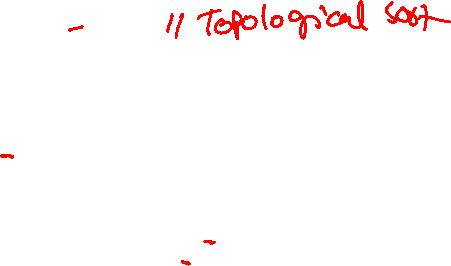 - // Topological sort